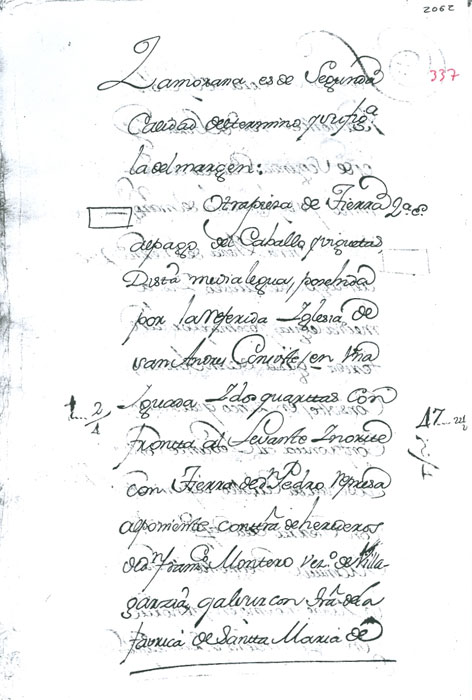 2062
337
Zamorana es de Segunda
Calidad de termino y su fig.ª
la del margen:
Otra pieza de Tierra 2.ª c.
al pago del Caballo y
Dista media legua, poseida
por la referida Iglesia de
san Andres Consiste en una
Iguada I dos quartas Con
fronta al Levante I norte
con Tierra de dn Pedro
al poniente con tra de herederos
de dn Franco Montero vezo de Villa
garzia, y al sur con tra de la
favrica de Santta Maria de
1 2/4
17